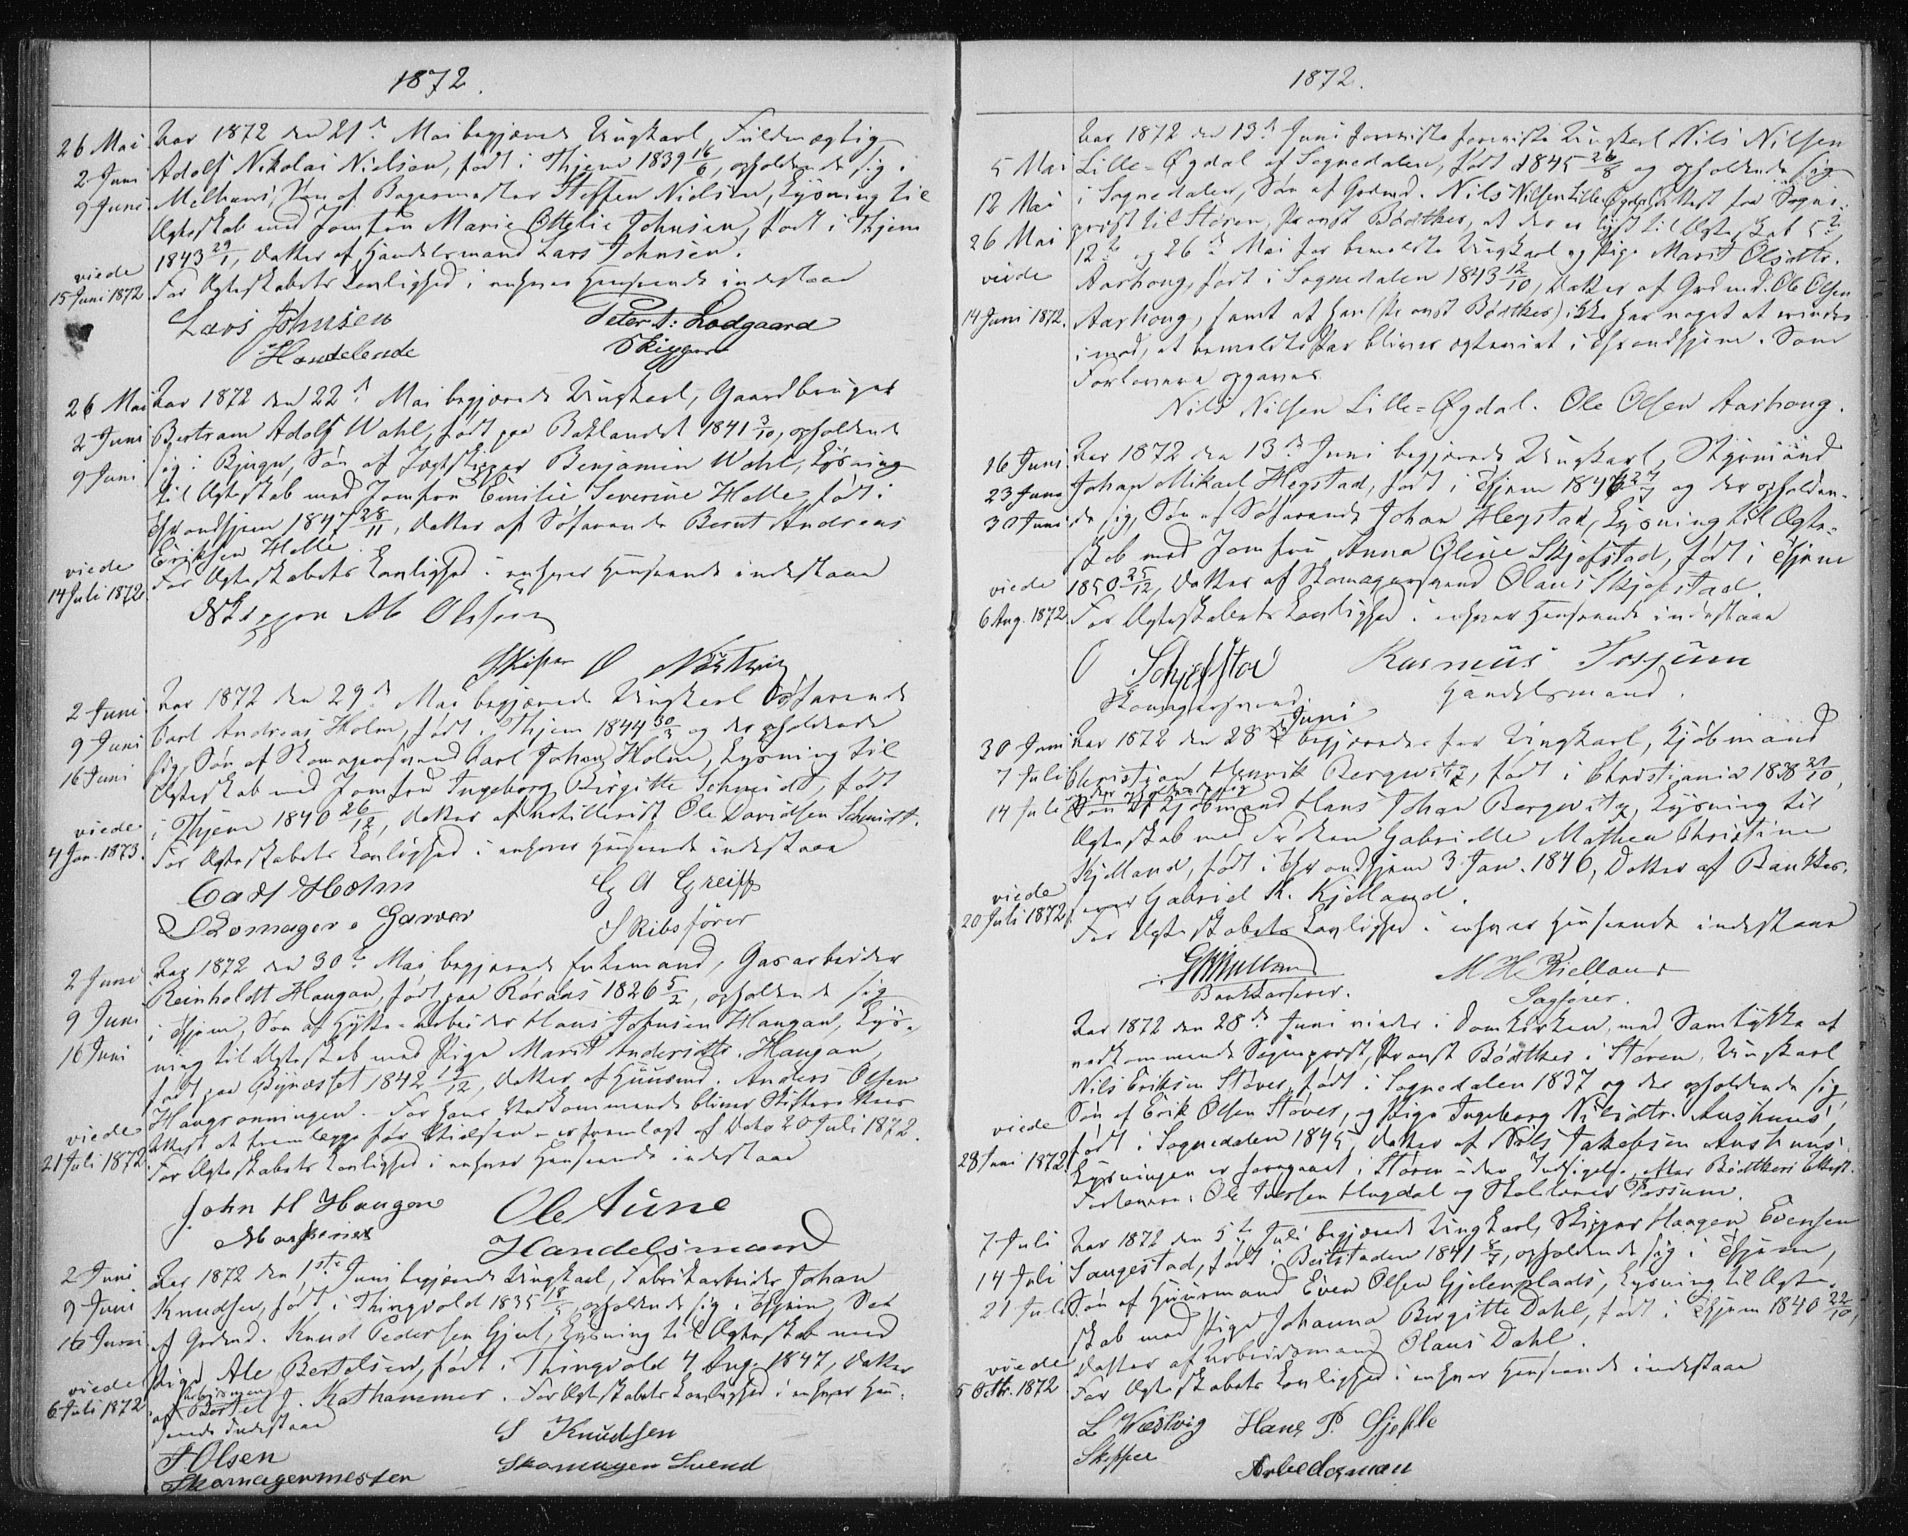 1872.
26 Mai Aar 1872 den 21de Mai begjærede Ungkarl, Fuldmægtig
2 Juni Adolf Nikolai Nielsen, født i Thjem 1839 16/6, opholdende sig i
9 Juni Melhuus, Søn af Bagermester Steffen Nielsen, Lysning til
Ægteskab med Jomfru Marie Ottilie Johnsen, født i Thjem
1843 29/1, Datter af Handelsmand Lars Johnsen.
viede
15 Juni 1872 For Ægteskabets Lovlighed i enhver Henseende indestaae
Lars Johnsen Peter A: Lodgaard
Handelende Skipper
26 Mai Aar 1872 den 22de Mai begjærede Ungkarl, Gaardbruger
2 Juni Bertram Adolf Wahl, født paa Baklandet 1841 3/10, opholdende
9 Juni sig i Bjugn, Søn af Jægtskipper Benjamin Wahl, Lysning
til Ægteskab med Jomfru Emilie Severine Holle, født i
Throndhjem 1847 28/11, Datter af Søfarende Bernt Andreas
Eriksen Holle.
viede
14 Juli 1872 For Ægteskabets Lovlighed i enhver Henseende indestaae
Skipper M Olsson
Skiper O
2 Juni Aar 1872 den 29de Mai begjærede Ungkarl Søfarende
9 Juni Carl Andreas Holm, født i Thjem 1844 30/3 og der opholdende
16 Juni sig, Søn af Skomagersvend Carl Johan Holm, Lysning til
Ægteskab med Jomfru Ingeborg Birgitte Schmidt, født
i Thjem 1840 26/12, Datter af Artillerist Ole Davidsen Schmidt.
viede
4 Jan. 1873. For Ægteskabets Lovlighed i enhver Henseende indestaae
Carl Holm G A Greiff
Skomager o Garver Skibsfører
2 Juni Aar 1872 den 30te Mai begjærede Enkemand, Gasarbeider
9 Juni Reinholdt Haugan, født paa Røraas 1826 5/2, opholdende sig
16 Juni i Thjem, Søn af Hytte-Arbeider Hans Johnsen Haugan, Lys-
ning til Ægteskab med Pige Marit Andersdtr. Haugan,
født paa Bynæsset 1842 /12, Datter af Huusmd. Anders Olsen
Haugrønningen. For ham Vedkommende bliver Skifterettens
viede Attest at fremlegge før Vielsen - er fremlagt af Dato 20 Juli 1872.
21 Juli 1872 For Ægteskabets Lovlighed i enhver Henseende indestaae
John H Haugen Ole Aune
Handelsmand
2 Juni Aar 1872 den 1ste Juni begjærede Ungkarl, Fabrikarbeider Johan
9 Juni Knudsen, født i Thingvold 1835 18/, opholdende sig i Thjem, Søn
16 Juni af Grdmd. Knud Pedersen Gjul, Lysning til Ægteskab med
Pige Ale Bertelsen, født i Thingvold 4 Aug. 1847, Datter
viede
6 Juli 1872 af Arbeidsmand Bertel J. Rathammer. For Ægteskabets Lovlighed i enhver Hen-
seende indestaae
J Olsen S Knudsen
Skomagermester Skomager Svend
1872.
Aar 1872 den 13de Juni foreviste foreviste Ungkarl Nils Nilsen
5 Mai Lille-Øgdal af Sognedalen, født 1845 26/8 og opholdende sig
12 Mai i Sognedalen, Søn af Grdmd. Nils Nilsen Lille Øgdal, Attest fra Sogne-
26 Mai prest til Støren, Provst Bødtker, at der er lyst til Ægteskab 5te
12te og 26de Mai for bemeldte Ungkarl og Pige Marit Olsdtr.
viede Aarhoug, født i Sognedalen 1843 12/10, Datter af Grdmd. Ole Olsen
14 Juni 1872. Aarhoug, samt at han (Provst Bødtker) ikke har noget at erindre
imod, at bemeldte Par bliver ægteviet i Throndhjem. Som
Forlovere opgaves
Nils Nilsen Lille-Øgdal. Ole Olsen Aarhoug.
16 Juni Aar 1872 den 13de Juni begjærede Ungkarl, Styrmand
23 Juni Johan Mikael Hegstad, født i Thjem 1846 27/7 og der opholden-
30 Juni de sig, Søn af Søfarende Johan Hegstad, Lysning til Ægte-
skab med Jomfru Anna Oline Skjefstad, født i Thjem
viede 1850 25/12, Datter af Skomagersvend Olaus Skjefstad.
6 Aug. 1872. For Ægteskabets Lovlighed i enhver Henseende indestaae
O Schjefstad Rasmus Fossum
Skomagersvend Handelsmand.
30 Juni Aar 1872 den 28de Juni begjæredes for Ungkarl, Kjøbmand
7 Juli Christian Henrik Bergwitz, født i Christiania 1838 21/10,
og der opholdende sig
14 Juli Søn af Kjøbmand Hans Johan Bergwitz, Lysning til
Ægteskab med Frøken Gabrielle Mathea Christine
Kjelland, født i Throndhjem 3 Jan. 1846, Datter af Bankkas-
viede serer Gabriel K. Kjelland.
20 Juli 1872. For Ægteskabets Lovlighed i enhver Henseende indestaae
GKKielland M H Kielland
Bankkasserer. Sagfører.
Aar 1872 den 28de Juni viedes i Domkirken, med Samtykke af
vedkommende Sogneprest, Provst Bødtker i Støren, Ungkarl
Nils Eriksen Støver, født i Sognedalen 1837 og der opholdende sig,
Søn af Erik Olsen Støver, og Pige Ingeborg Nilsdtr. Aushuus,
viede født i Sognedalen 1845, Datter af Nils Jakobsen Aushuus.
28 Juni 1872 Lysningen er foregaaet i Støren uden Indsigelse efter Bødtkers Attest.
Forlovere: Ole Iversen Hugdal og Skolelærer Fossum.
7 Juli Aar 1872 den 5te Juli begjærede Ungkarl, Skipper Haagen Evensen
14 Juli Saugestad, født i Beitstaden 1841 8/7, opholdende sig i Thjem,
21 Juli Søn af Huusmand Even Olsen Gjelenplads, Lysning til Ægte-
skab med Pige Johanna Birgitte Dahl, født i Thjem 1840 22/10,
viede Datter af Arbeidsmand Olaus Dahl.
5 Octbr. 1872 For Ægteskabets Lovlighed i enhver Henseende indestaae
L Westvig Hans P. Gjefle
Skipper Arbedesman